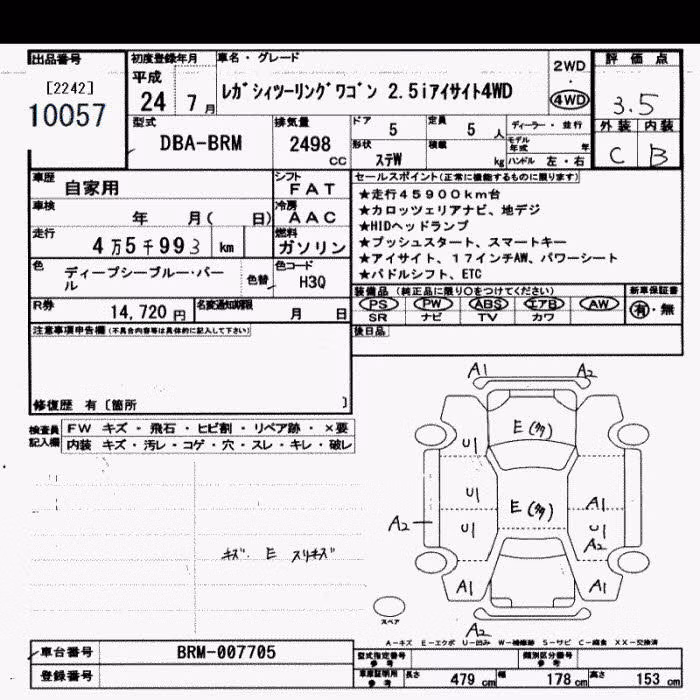 出品番号
[2242]
10057
初度登録年月
平成
24 7月
車名・グレード
ﾚｶﾞｼｨﾂｰﾘﾝｸﾞﾜｺﾞﾝ 2.5iｱｲｻｲﾄ4WD
2WD
・
4WD
評価点
3.5
外装 内装
C B
型式
DBA-BRM
排気量
2498
CC
ドア 5
定員 5 人
形状 ｽﾃW
積載 kg
ディーラー・並行
モデル年式 年
ハンドル 左・右
車歴
自家用
シフト
FAT
車検
年 月( 日)
冷房
AAC
走行
4万5千993 km
燃料
ガソリン
色
ディープシーブルー・パール
色替
色コード
H3Q
R券
14,720円
名変通知期限
月 日
セールスポイント(正常に機能するものに限ります)
★走行45900km台
★カロッツェリアナビ、地デジ
★HIDヘッドランプ
★プッシュスタート、スマートキー
★アイサイト、17インチAW、パワーシート
★パドルシフト、ETC
装備品(純正品に限り○をつけてください)
新車保証書
PS PW ABS エアB AW
SR ナビ TV カワ
有・無
後日品
注意事項申告欄(不具合内容等は具体的に記入して下さい)
修復歴 有〔箇所 〕
検査員記入欄
FW キズ・飛石・ヒビ割・リペア跡・×要
内装 キズ・汚レ・コゲ・穴・スレ・キレ・破レ
キズ. E スリキズ
A1 A2
E(多)
U1
U1 E(多) A1
A2 U1 U1
A2
A1 A1
スペア
A2
A-キズ E-エクボ U-凹み W-補修跡 S-サビ C-腐食 XX-交換済
車台番号
BRM-007705
登録番号
型式指定番号
参考
類別区分番号
参考
車庫証明用
参考
長さ 479 cm
幅 178 cm
高さ 153 cm